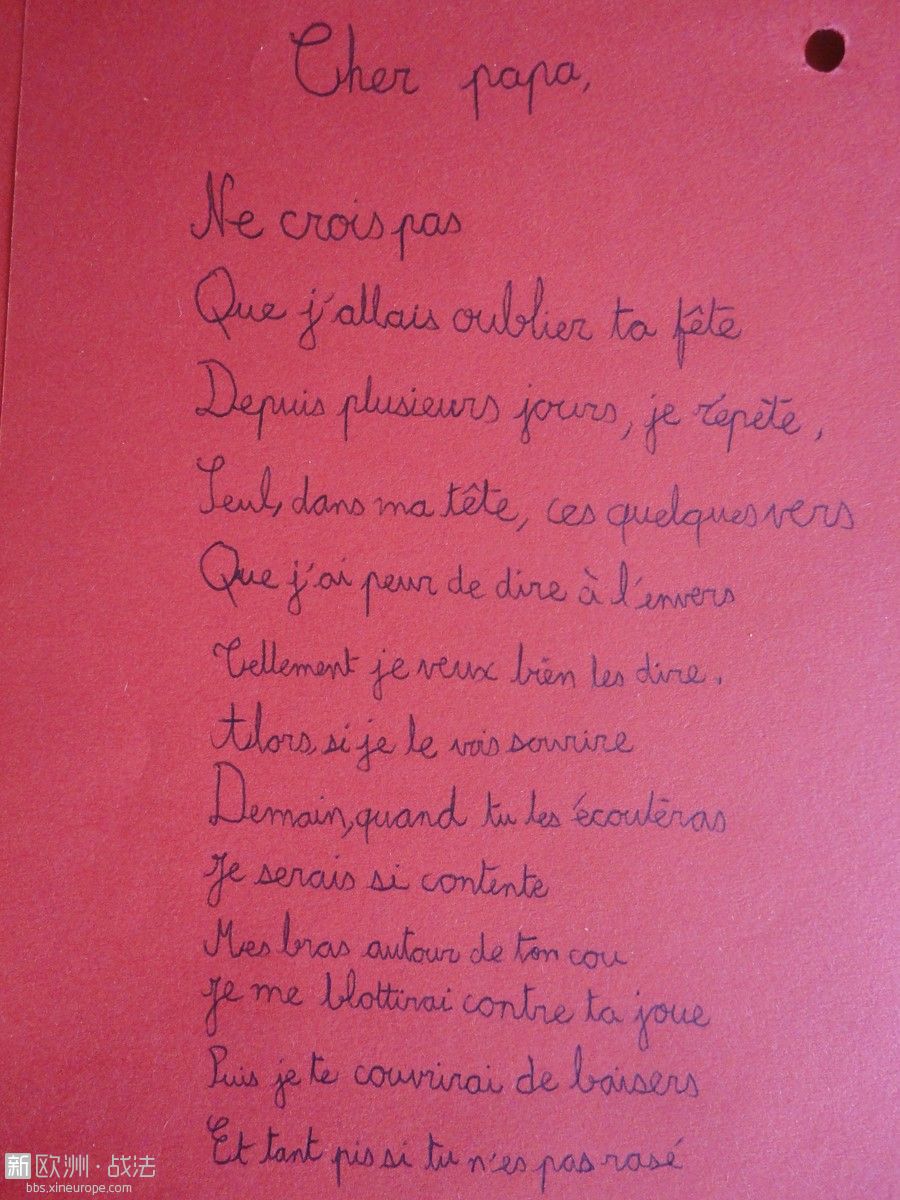 Cher papa,
Ne crois pas
Que j'allais oublier ta fête
Depuis plusieurs jours, je répète,
Seul, dans ma tête, ces quelques vers
Que j'ai peur de dire à l'envers
Tellement je veux bien les dire.
Alors, si je le vois sourire
Demain, quand tu les écoutéras
Je serais si contente
Mes bras autour de ton cou
Je me blottirai contre ta joue
Puis je te couvrirai de baisers
Et tant pis si tu n'es pas rasé
新欧洲·战法
bbs.xineurope.com